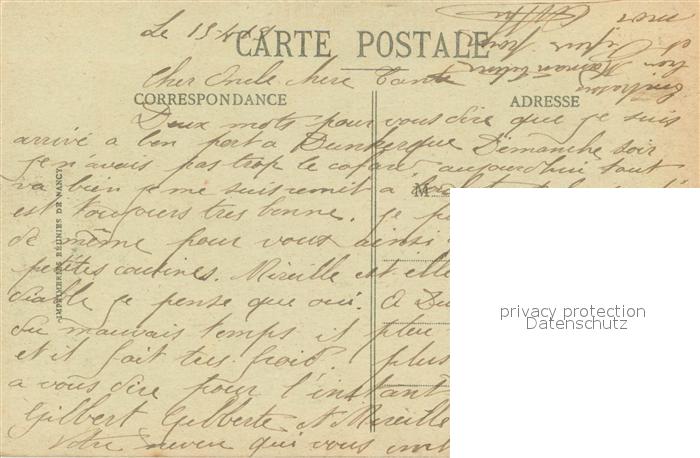 Le 15
CARTE POSTALE
Cher Oncle chère Tante
CORRESPONDANCE
ADRESSE
Deux mots pour vous dire que je suis
arrivé a bon port a Dunkerque Dimanche soir
je n'avais pas trop le cafard, aujourdhui tout
va bien je me suis remit a
M
est toujours tres bonne. je
de même pour vous ainsi
petites cousines. Mireille est elle
diable je pense que oui. A Du
du mauvais temps il pleu
et il fait tres froid. plus
a vous dire pour l'instant
Gilbert Gilberte et Mireille
Votre neveu qui vous
IMPRIMERIES RÉUNIES DE NANCY
privacy protection
Datenschutz